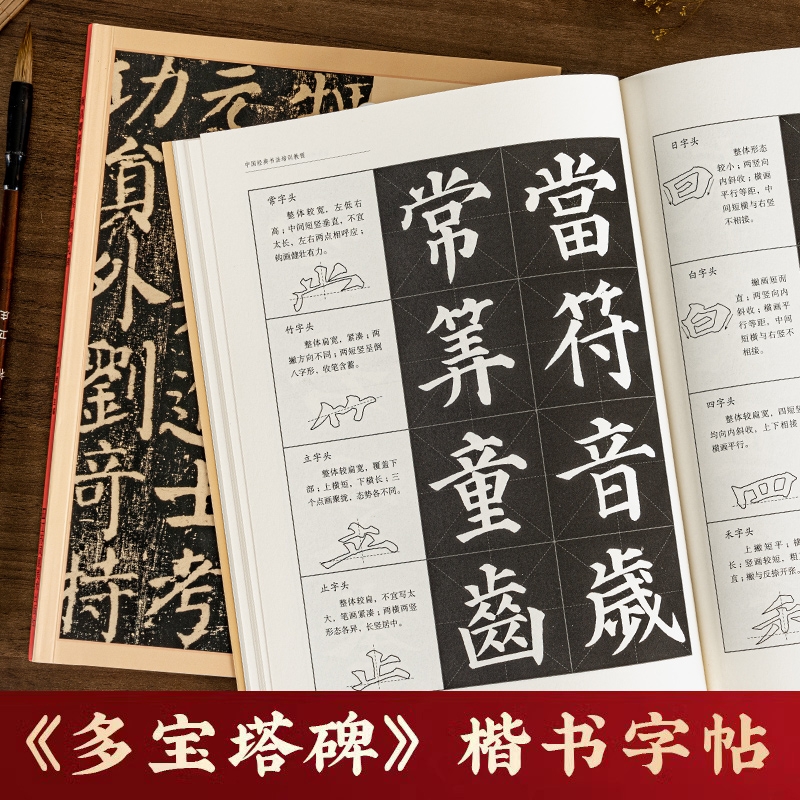 功
員
外
劉
奇
特
元
士
考
中国经典书法培训教程
常字头
整体较宽，左低右
高；中间短竖垂直，不宜
太长，左右两点相呼应；
钩画健壮有力。
常
當
竹字头
整体扁宽，紧凑；两
撇方向不同；两短竖呈倒
八字形，收笔含蓄。
筭
符
立字头
整体较扁宽，覆盖下
部；上横短，下横长；三
个点画聚拢，态势各不同。
童
音
止字头
整体较扁，不宜写太
大，笔画紧凑；两横两竖
形态各异，长竖居中。
齒
歲
日字头
整体形态
较小；两竖向
内斜收；横画
平行等距，中
间短横与右竖
不相接。
白字头
撇画短而
直；两竖向内
斜收；横画平
行等距，中间
短横与右竖不
相接。
四字头
整体较扁宽，四短竖
均向内斜收，上下相接
横画平行。
禾字头
上撇短平；横
长；竖画较短，粗
直；撇与反捺开张。
《多宝塔碑》楷书字帖